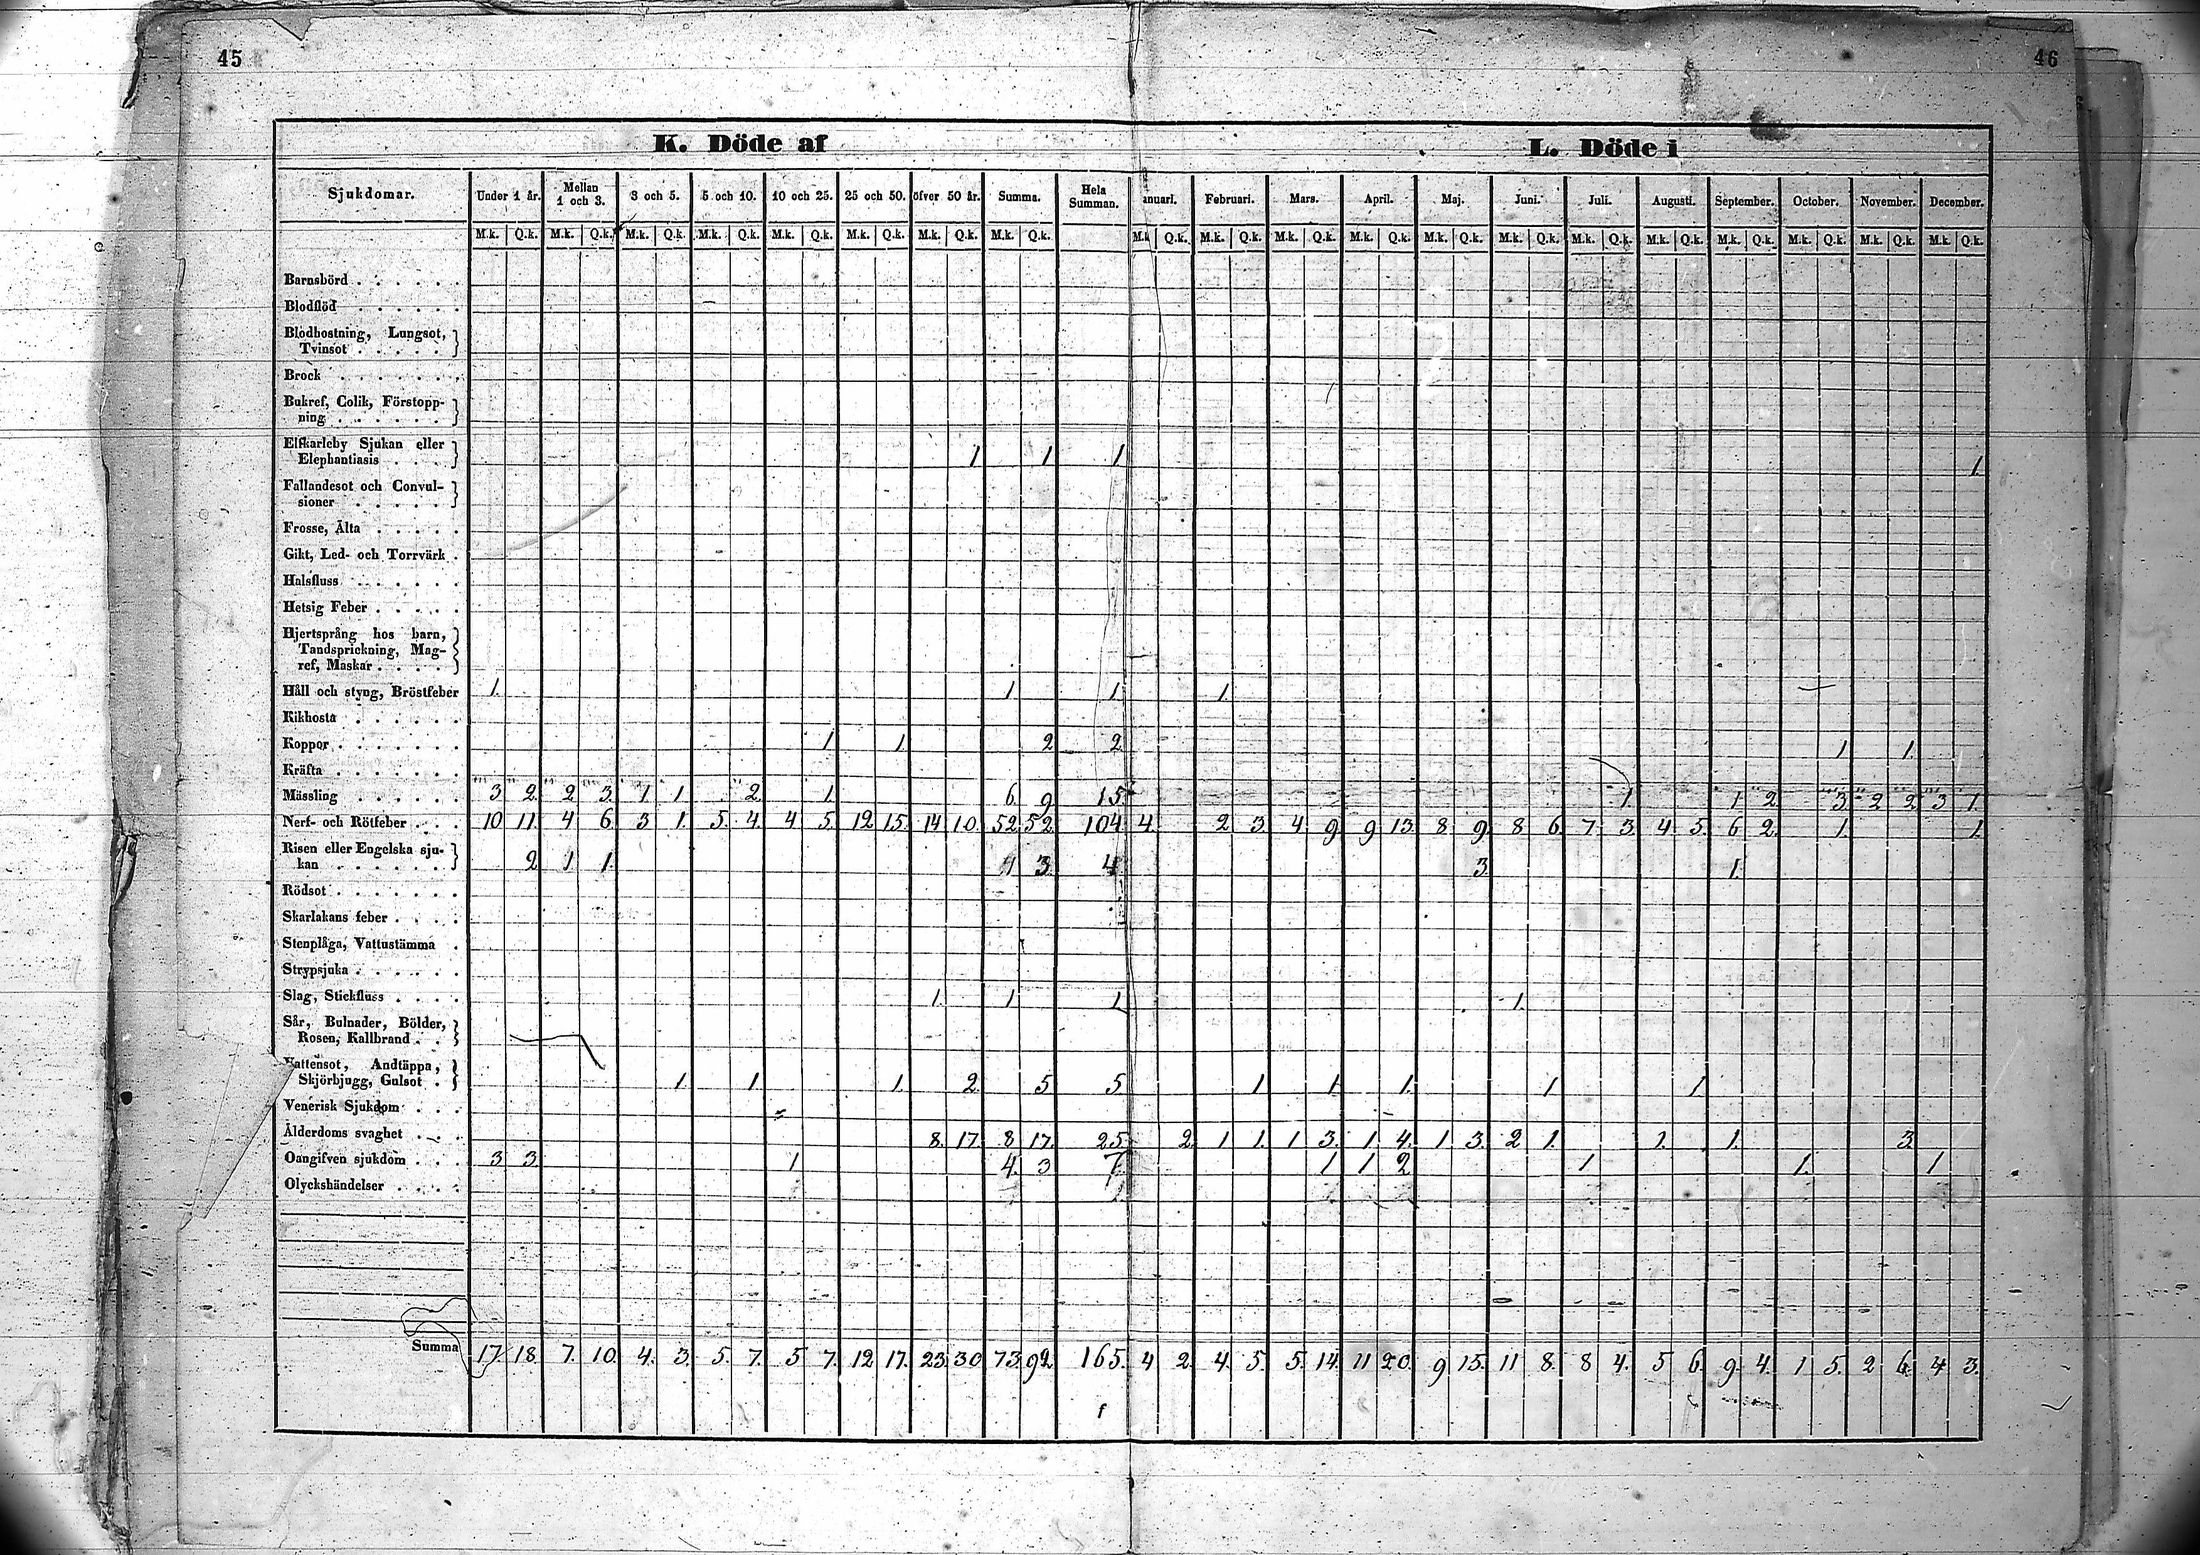 45
46
K. Döde af
L. Döde i
Sjukdomar. Under 1 år. Mellan 1 och 3. 3 och 5. 5 och 10. 10 och 25. 25 och 50. öfver 50 år. Summa. Hela Summan. anuari. Februari. Mars. April. Maj. Juni. Juli. Augusti. September. October. November. December.
M.k. Q.k. M.k. Q.k. M.k. Q.k. M.k. Q.k. M.k. Q.k. M.k. Q.k. M.k. Q.k. M.k. Q.k. M.k Q.k. M.k. Q.k. M.k. Q.k. M.k. Q.k. M.k. Q.k. M.k. Q.k. M.k. Q.k. M.k. Q.k. M.k. Q.k. M.k. Q.k. M.k. Q.k. M.k. Q.k.
Barnsbörd . . . . . .
Blodflöd . . . . . .
Blodhostning, Lungsot,
Tvinsot . . . . .
Brock . . . . . . .
Bukref, Colik, Förstopp-
ning . . . . . .
Elfkarleby Sjukan eller
Elephantiasis . . . 1 1 1 1.
Fallandesot och Convul-
sioner . . . . . .
Frosse, Älta . . . . .
Gikt, Led- och Torrvärk .
Halsfluss . . . . . .
Hetsig Feber . . . . .
Hjertsprång hos barn,
Tandsprickning, Mag-
ref, Maskar . . . .
Håll och styng, Bröstfeber 1. 1 1. 1.
Kikhosta . . . . . .
Koppor . . . . . . . 1. 1. 2 2 1. 1.
Kräfta . . . . . . .
Mässling . . . . . . 3 2. 2 3. 1 1. 2. 1. 6. 9. 15. 1. 1. 2. 3. 2 2. 3 1.
Nerf- och Rötfeber . . . 10 11. 4 6. 3 1. 5. 4. 4 5. 12 15. 14 10. 52. 52. 104 4. 2 3. 4 9. 9 13. 8 9. 8 6. 7. 3. 4 5. 6 2. 1. 1.
Risen eller Engelska sju-
kan . . . . . . . 2 1 1. 1 3. 4. 3. 1.
Rödsot . . . . . .
Skarlakans feber . . . .
Stenplåga, Vattustämma .
Strypsjuka . . . . . .
Slag, Stickfluss . . . . 1. 1 1. 1.
Sår, Bulnader, Bölder,
Rosen, Kallbrand . .
attensot, Andtäppa,
Skjörbjugg, Gulsot . 1. 1. 1. 2. 5 5 1. 1. 1. 1. 1.
Venerisk Sjukdom . . .
Ålderdoms svaghet . . . 8. 17. 8 17. 25. 2. 1 1. 1 3. 1 4. 1 3. 2 1. 1. 1. 3.
Oangifven sjukdom . . . 3 3. 1 4. 3 7. 1 1 2 1 1. 1
Olyckshändelser . . . .
Summa 17. 18. 7. 10. 4. 3. 5. 7. 5 7. 12 17. 23. 30 73. 92. 165. 4 2. 4. 5. 5. 14. 11 20. 9 15. 11 8. 8 4. 5 6. 9 4. 1 5. 2 6. 4 3.